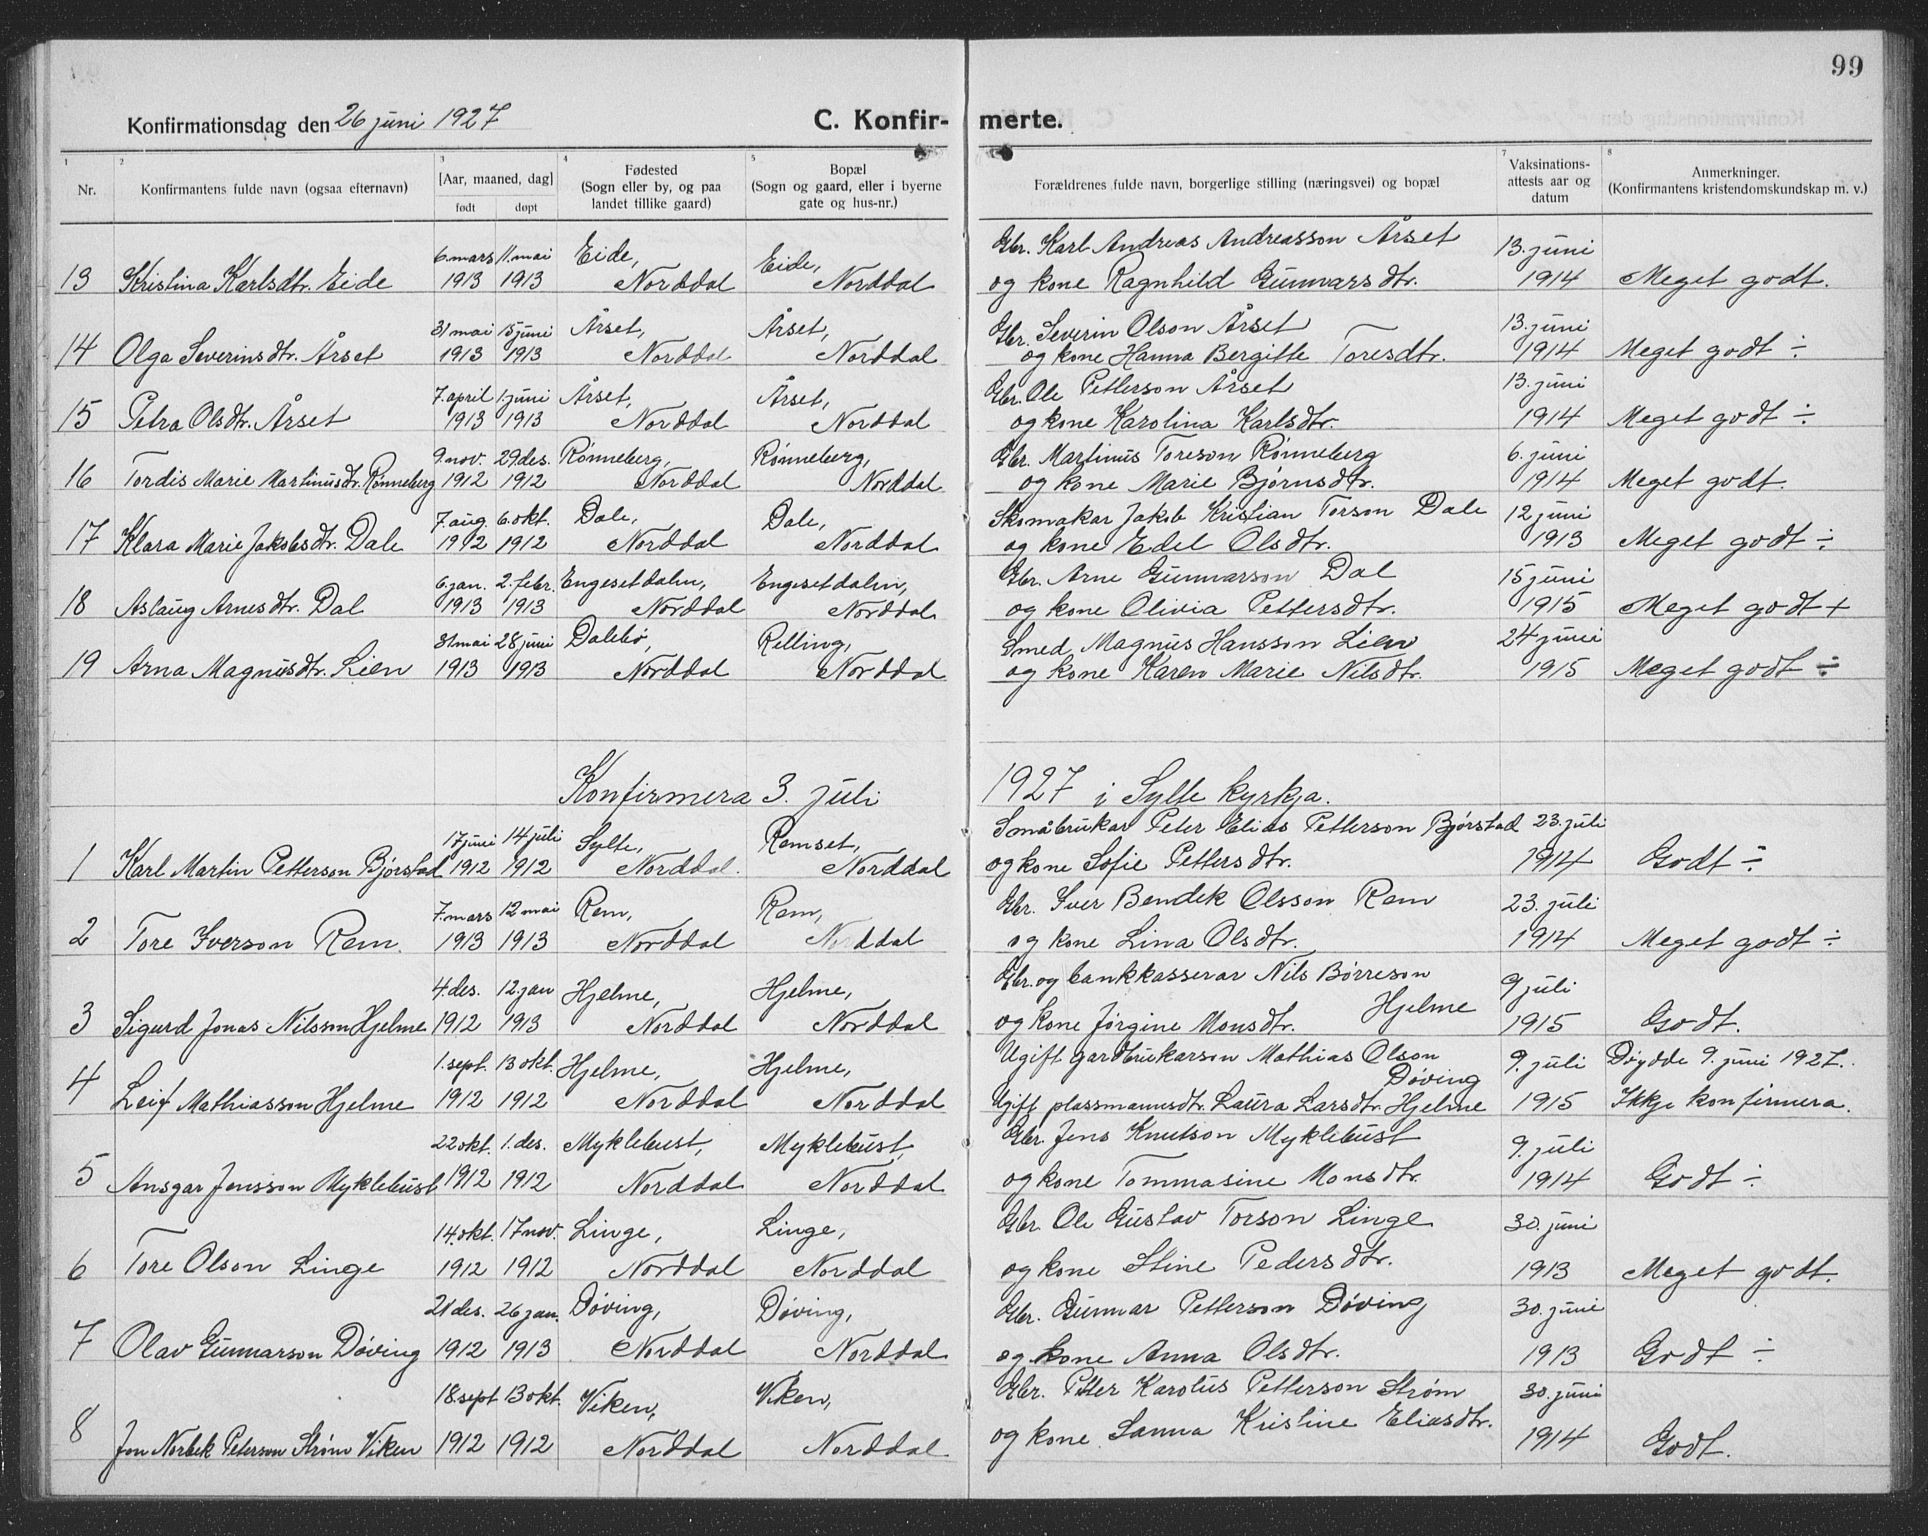 99
Konfirmationsdag den 26 juni 1927 C. Konfir- merte.
1 2 3 4 5 7 8
Nr. Konfirmantens fulde navn (ogsaa efternavn) [Aar, maaned, dag] født døpt Fødested (Sogn eller by, og paa landet tillike gaard) Bopæl (Sogn og gaard, eller i byerne gate og hus-nr.) Forældrenes fulde navn, borgerlige stilling (næringsvei) og bopæl Vaksinations-attests aar og datum Anmerkninger. (Konfirmantens kristendomskundskap m. v.)
6. mars 11. mai Eide, Eide, Gbr. Karl Andreas Andreasson Årset 13. juni
13 Kristina Karlsdtr. Eide 1913 1913 Norddal Norddal og kone Ragnhild Gunnarsdtr. 1914 Meget godt.
31 mai 15 juni Årset, Årset, Gbr. Severin Olson Årset 13. juni
14 Olga Severinsdtr. Årset 1913 1913 Norddal Norddal og kone Hanna Bergitte Toresdtr. 1914 Meget godt ÷
7. april 1. juni Årset, Årset, Gbr. Ole Petterson Årset 13. juni
15 Petra Olsdtr. Årset 1913 1913 Norddal Norddal og kone Karolina Karlsdtr. 1914 Meget godt ÷
9. nov. 29. des. Rønneberg, Rønneberg, Gbr. Martinus Toreson Rønneberg 6. juni
16 Tordis Marie Martinusdtr. Rønneberg 1912 1912 Norddal Norddal og kone Marie Bjørnsdtr. 1914 Meget godt.
7. aug. 6. okt. Dale, Dale, Skomakar Jakob Kristian Torson Dale 12 juni
17 Klara Marie Jakobsdtr. Dale 1912 1912 Norddal Norddal og kone Edel Olsdtr. 1913 Meget godt ÷
6. jan. 2. febr. Engesetdalen, Engesetdalen, Gbr. Arne Gunnarson Dal 15 juni
18 Aslaug Arnesdtr. Dal 1913 1913 Norddal Norddal og kone Olivia Pettersdtr. 1915 Meget godt +
31 mai 28 juni Dalebø, Relling, Smed Magnus Hansson Lien 24 juni
19 Arna Magnusdtr. Lien 1913 1913 Norddal Norddal og kone Karen Marie Nilsdtr. 1915 Meget godt ÷
Konfirmera 3. juli 1927 i Sylte kyrkja.
17 juni 14 juli Sylte, Remset, Småbrukar Peter Elias Petterson Bjørstad 23. juli
1 Karl Martin Petterson Bjørstad 1912 1912 Norddal. Norddal og kone Sofie Pettersdtr. 1914 Godt ÷
7. mars 12 mai Rem, Rem, Gbr. Iver Bendek Olsson Rem 23. juli
2 Tore Iverson Rem. 1913 1913 Norddal Norddal og kone Lina Olsdtr. 1914 Meget godt ÷
4. des. 12. jan Hjelme, Hjelme, Gbr. og bankkasserar Nils Børreson Hjelme 9 juli
3 Sigurd Jonas Nilsson Hjelme 1912 1913 Norddal Norddal og kone Jørgine Monsdtr. 1915 Godt.
1. sept. 13 okt. Hjelme, Hjelme, Ugift gardbrukarson Mathias Olson Døving 9. juli Døydde 9. juni 1927.
4 Leif Mathiasson Hjelme 1912 1912 Norddal Norddal Ugift plassmannsdtr. Laura Larsdtr. Hjelme 1915 Ikkje konfirmera.
22 okt. 1. des. Myklebust, Myklebust, Gbr. Jens Knutson Myklebust 9. juli
5 Ansgar Jensson Myklebust 1912 1912 Norddal Norddal og kone Tommasine Monsdtr. 1914 Godt ÷
14. okt. 17 nov. Linge, Linge, Gbr. Ole Gustav Torson Linge 30. juni
6 Tore Olson Linge 1912 1912 Norddal Norddal og kone Stine Pedersdtr. 1913 Meget godt.
21 des. 26 jan. Døving, Døving, Gbr. Gunnar Petterson Døving 30. juni
7 Olav Gunnarson Døving 1912 1913 Norddal Norddal og kone Anna Olsdtr. 1913 Godt ÷
18. sept 13 okt. Viken, Viken, Gbr. Peter Karolus Petterson Strøm 30. juni
8 Jon Norbek Peterson Strøm Viken 1912 1912 Norddal Norddal og kone Sanna Kristine Eliasdtr. 1914 Godt.